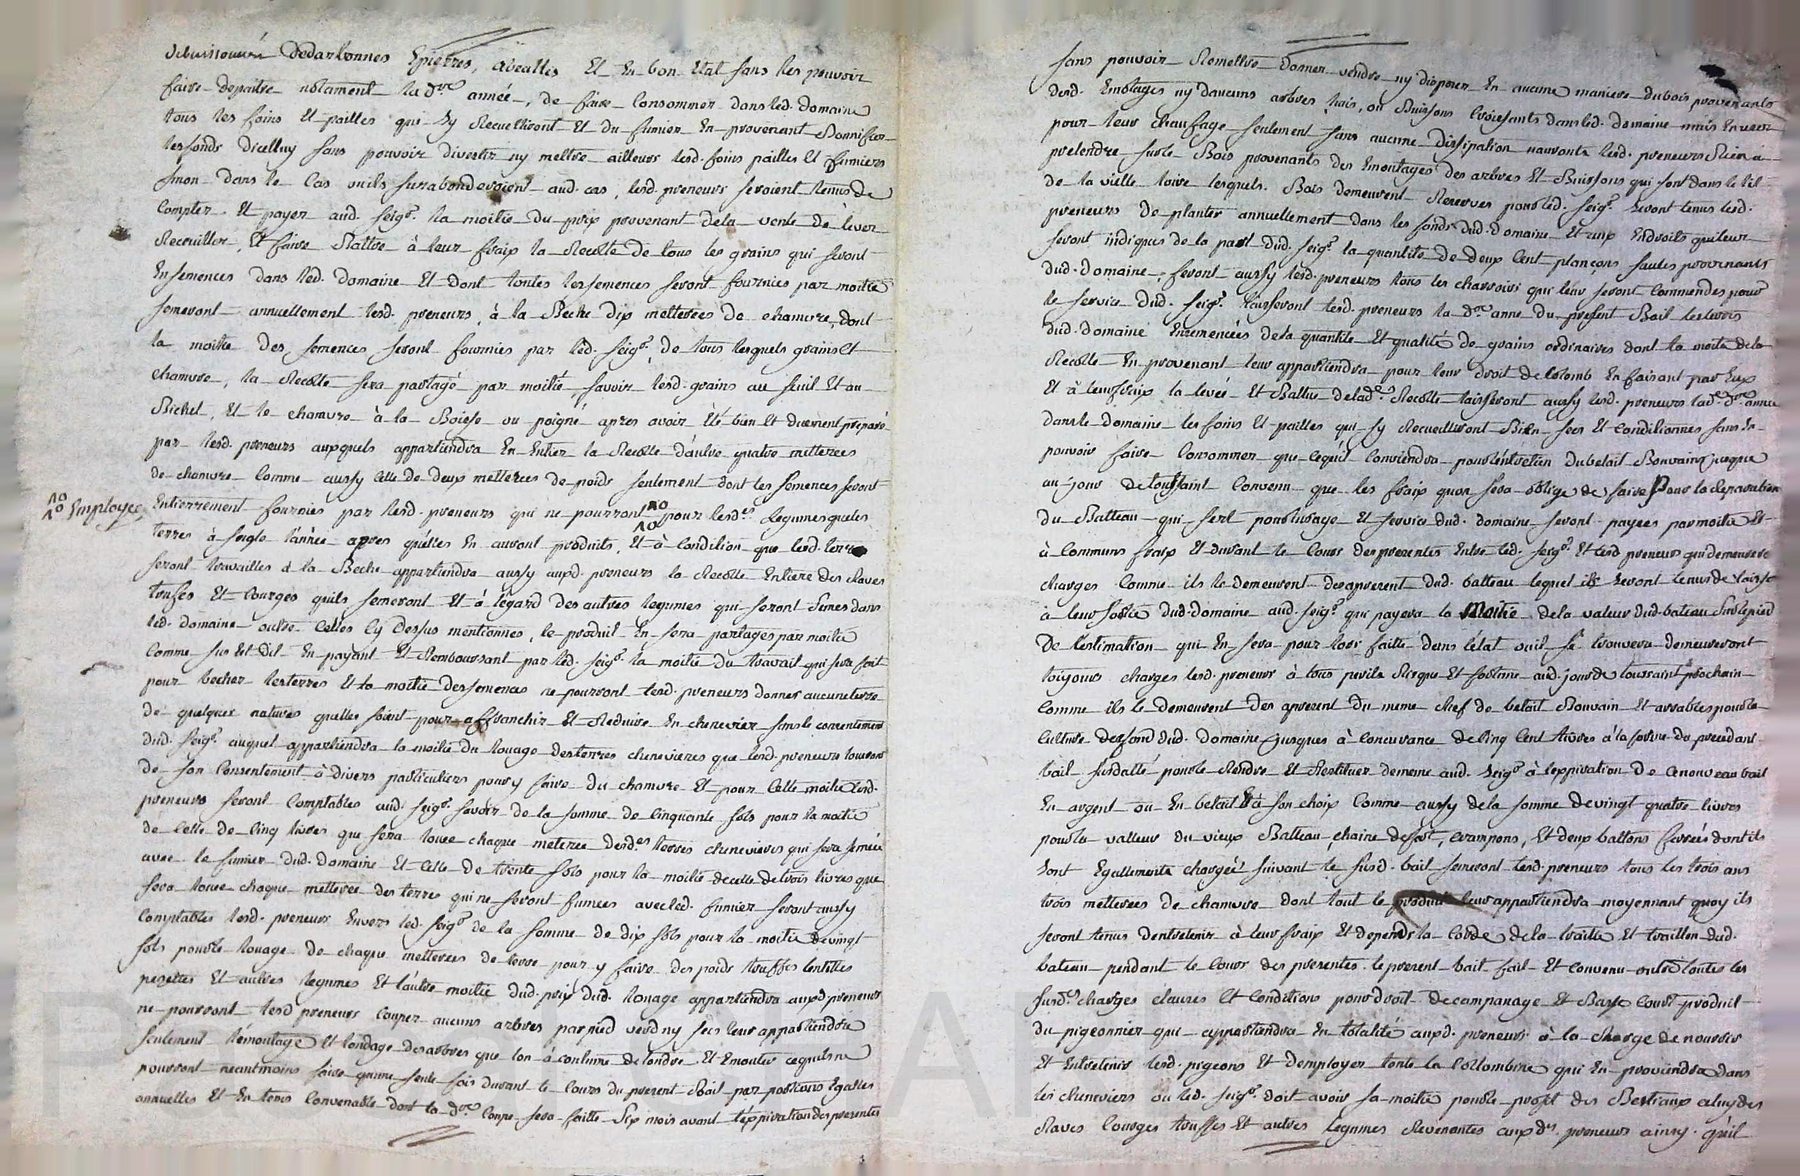 debuissonnés dedarbonnes Epierres, abealles Et En bon Etat sans les pouvoir
faire depaitre notament la d.re année, de faire Consommer dans led. domaine
tous les foins Et pailles qui sy Recueilliront Et du fumier En provenant Bonnifier
les fonds dicelluy sans pouvoir divertir ny mettre ailleurs lesd. foins pailles Et fumiers
sinon dans le Cas ouils surabonderoient aud. cas, lesd. preneurs seroient tenus de
Compter Et payer aud. seig.r la moitié du prix provenant dela vente de lever
Recruiller, Et faire Battre à leur fraix la Recolte de tous les grains qui seront
Ensemencés dans led. domaine Et dont toutes les semences seront fournies par moitié
semeront annuellement lesd. preneurs, à la Beche dix metterées de chamvre, dont
la moitié des semences seront fournies par led. seig.r, de tous lesquels grains Et
chamvre, la Recolte sera partagé par moitié, savoir lesd. grains au seuil Et au
Bichet, Et le chamvre à la Boisse ou poigné apres avoir Eté bien Et duement préparé
par lesd. preneurs auxquels appartiendra En Entier la Recolte d'autre quatre metterées
de chamvre Comme aussy Celle de deux metterées de poids seulement dont les semences seront
no no Employer
Entierrement fournies par lesd. preneurs qui ne pourront no no pour lesd.es Legumes queles
terres à seigle l'année apres quelles En auront produits, Et à Condition que lesd. terres
seront travaillés à la Beche appartiendra aussy auxd. preneurs la Recolte Entiere des Raves
trufes Et Courges quils semeront Et à l'égard des autres legumes qui seront semés dans
led. domaine outre Celles Cy Dessus mentionnés, le produit En sera partagés par moitié
Comme sus Est dit En payant Et Remboursant par led. seig.r la moitié du travail qui sera fait
pour becher les terres Et la moitié des semences ne pourront lesd. preneurs donner aucune terre
de quelques natures quelles soient pour affranchir Et Reduire En chenevier sans le consentement
dud. seig.r auquel appartiendra la moitié du louage des terres chenevieres que lesd. preneurs loueront
de son Consentement à divers particuliers pour y faire du chamvre Et pour Cette moitié Lesd.
preneurs seront Comptables aud. seig.r savoir de la somme de Cinquante sols pour la moitié
de Celle de Cinq livres que sera louée chaque meterée desd.es terres chenevieres qui sera semée
avec le fumier dud. domaine Et Celle de trente sols pour la moitié de celle de trois livres que
sera louée chaque metterée des terres qui ne seront fumées avec led. fumier seront aussy
Comptables lesd. preneurs Envers led. seig.r de la somme de dix sols pour la moitié de vingt
sols pour le louage de chaque metterées de terre pour y faire des poids truffes lentilles
pezettes Et autres legumes Et l'autre moitié dud. prix dud. louage appartiendra auxd. preneurs
ne pourront lesd preneurs couper aucuns arbres par pied verd ny secs leur appartiendra
seulement l'émontage Et tondage des arbres que lon à coutume de tondre Et Emonter cequils ne
pourront neantmoins faire quune seule fois durant le Cours du present Bail par portions Egalles
annuelles Et En tems Convenable dont la d.re Coupe sera faitte six mois avant l'éxpiration des presentes
sans pouvoir Remettre donner vendre ny disposer En aucune maniere du bois provenants
desd. Emotages ny daucuns arbres hais, ou Buissons Croissants dans led. domaine mais En user
pour leur chauffage seulement sans aucune dissipation nauronts lesd. preneurs Rien à
pretendre sur le Bois provenants des Emontages des arbres Et Buissons qui sont dans le lit
de la vielle loire lesquels Bois demeurent Reservés pour led. seig.r seront tenus lesd.
preneurs de planter annuellement dans les fonds dud. domaine Et aux Endroits qui leur
seront indiqués de la part dud. seig.r la quantité de deux Cent plançons saules provenants
dud. domaine, seront aussy lesd. preneurs tous les charrois qui leur seront Commendés pour
le service dud. seig.r laisseront lesd. preneurs la d.re anne du present Bail les terres
dud. domaine Ensemencées de la quantité Et qualité de grains ordinaires dont la moitié de la
Recolte En provenant leur appartiendra pour leur droit de Colomb En faisant par Eux
Et à leur fraix la levée Et Battue de lad.e Recolte laisseront aussy lesd. preneurs lad.e d.re année
dans le domaine les foins Et pailles qui sy Recueilliront Bien secs Et Conditionnés sans En
pouvoir faire Consommer que cequil Conviendra pour l'entretien du betail Bouvain jusque
au jour de toussaint Convenu que les fraix quon sera obligé de faire Pour la reparation
du Batteau qui sert pour lusage Et service dud. domaine seront payés par moitié Et
à Communs fraix Et durant le Cours des presentes Entre led. seig.r Et lesd preneurs qui demeurere
chargés Comme ils la demeurent des apresent dud. batteau lequel ils seront tenus de laisse
à leur sortie dud. domaine aud. seig.r qui payera la Moitié de la valeur dud. bateau sur le pied
De l'estimation qui En sera pour lors faitte dans l'état ouil se trouvera demeureront
toujours chargés lesd. preneurs à tous perils Risque Et fortune aud. jour de toussaint prochain
Comme ils le demeurent Des apresent du meme chef de betail Bouvain Et arrables pour la
Culture des fond dud. domaine jusques à Concurance de Cinq Cent livres à la forme du precedant
bail susdatté pour le Rendre Et Restituer de meme aud. seig.r à l'expiration de Cenouveau bail
En argent ou En betail Et à son choix Comme aussy de la somme de vingt quatre livres
pour la valleur du vieux Batteau, chaine de fert, crampons, Et deux battons ferrés dont ils
sont Egallements chargés suivant le susd. bail semeront lesd. preneurs tous les trois ans
trois metterées de chamvre dont tout le produit leur appartiendra moyennant quoy ils
seront tenus dentretenir à leur fraix Et depends la Corde de la traille Et traillon dud.
bateau pendant le Cours des presentes. le present bail fait Et Convenu outre toutes les
susd.es charges clauses Et Conditions pour droit decampanage Et Basse Cour produit
du pigeonnier qui appartiendra En totalité auxd. preneurs à la charge de nourrir
Et Entretenir lesd. pigeons Et demployer toute la Collombine qui En proviendra dans
les cheneviers ou led. seig.r doit avoir sa moitié pour le profit des Bestiaux celuy des
Raves Courges truffes Et autres Legumes Revenantes auxd.es preneurs ainsy quil